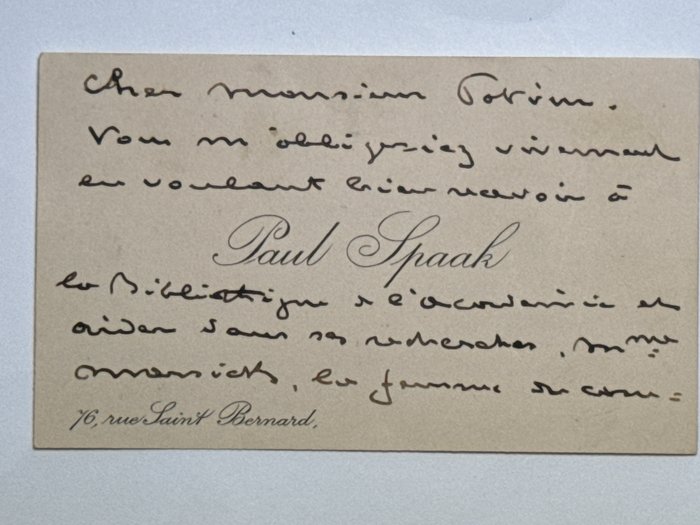 Cher monsieur
Vous m'obligeriez vivement
en voulant bien recevoir à
Paul Spaak
la Bibliothèque de l'académie et
aider dans ses recherches, Mme
la femme du com-
76, rue Saint Bernard.